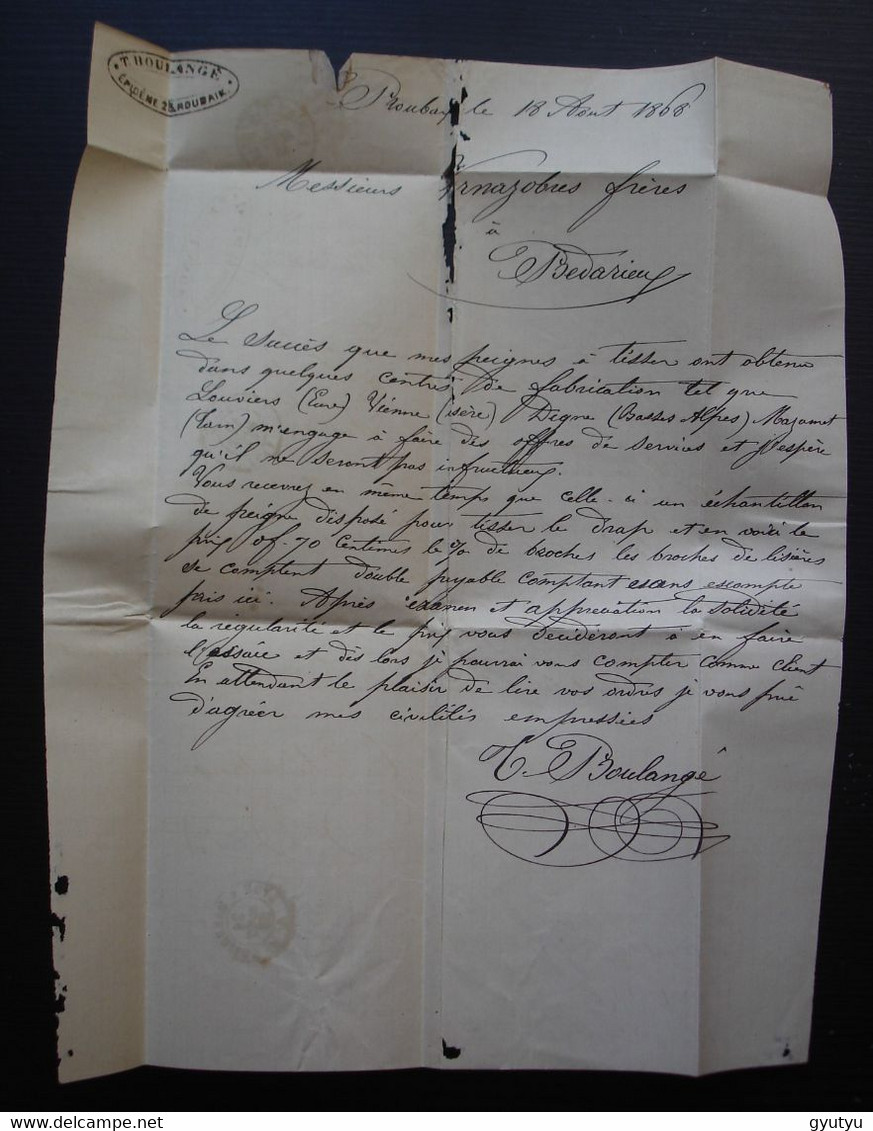 T. BOULANGÉ
EPIDÈME 28 ROUBAIX.
Roubaix le 18 Août 1868
Messieurs Vernazobres frères
à
Bedarieux
Le succès que mes peignes à tisser ont obtenu
dans quelques centres de fabrication tel que
Louviers (Eure) Vienne (isère) Digne (Basses Alpes) Mazamet
(Tarn) m'engage à faire des offres de services et j'espère
qu'il ne seront pas infructueux.
Vous recevrez en même temps que celle-ci un échantillon
de peigne disposé pour tisser le drap et en voici le
prix 0f.70 Centimes le % de broches les broches de lisières
se comptent double payable comptant sans escompte
pris ici. Après examen et appréciation la solidité
la régularité et le prix vous décideront à en faire
l'essaie et dès lors je pourrai vous compter comme client
En attendant le plaisir de lire vos ordres je vous prie
d'agréer mes civilités empressées
T. Boulangé
gyutyu